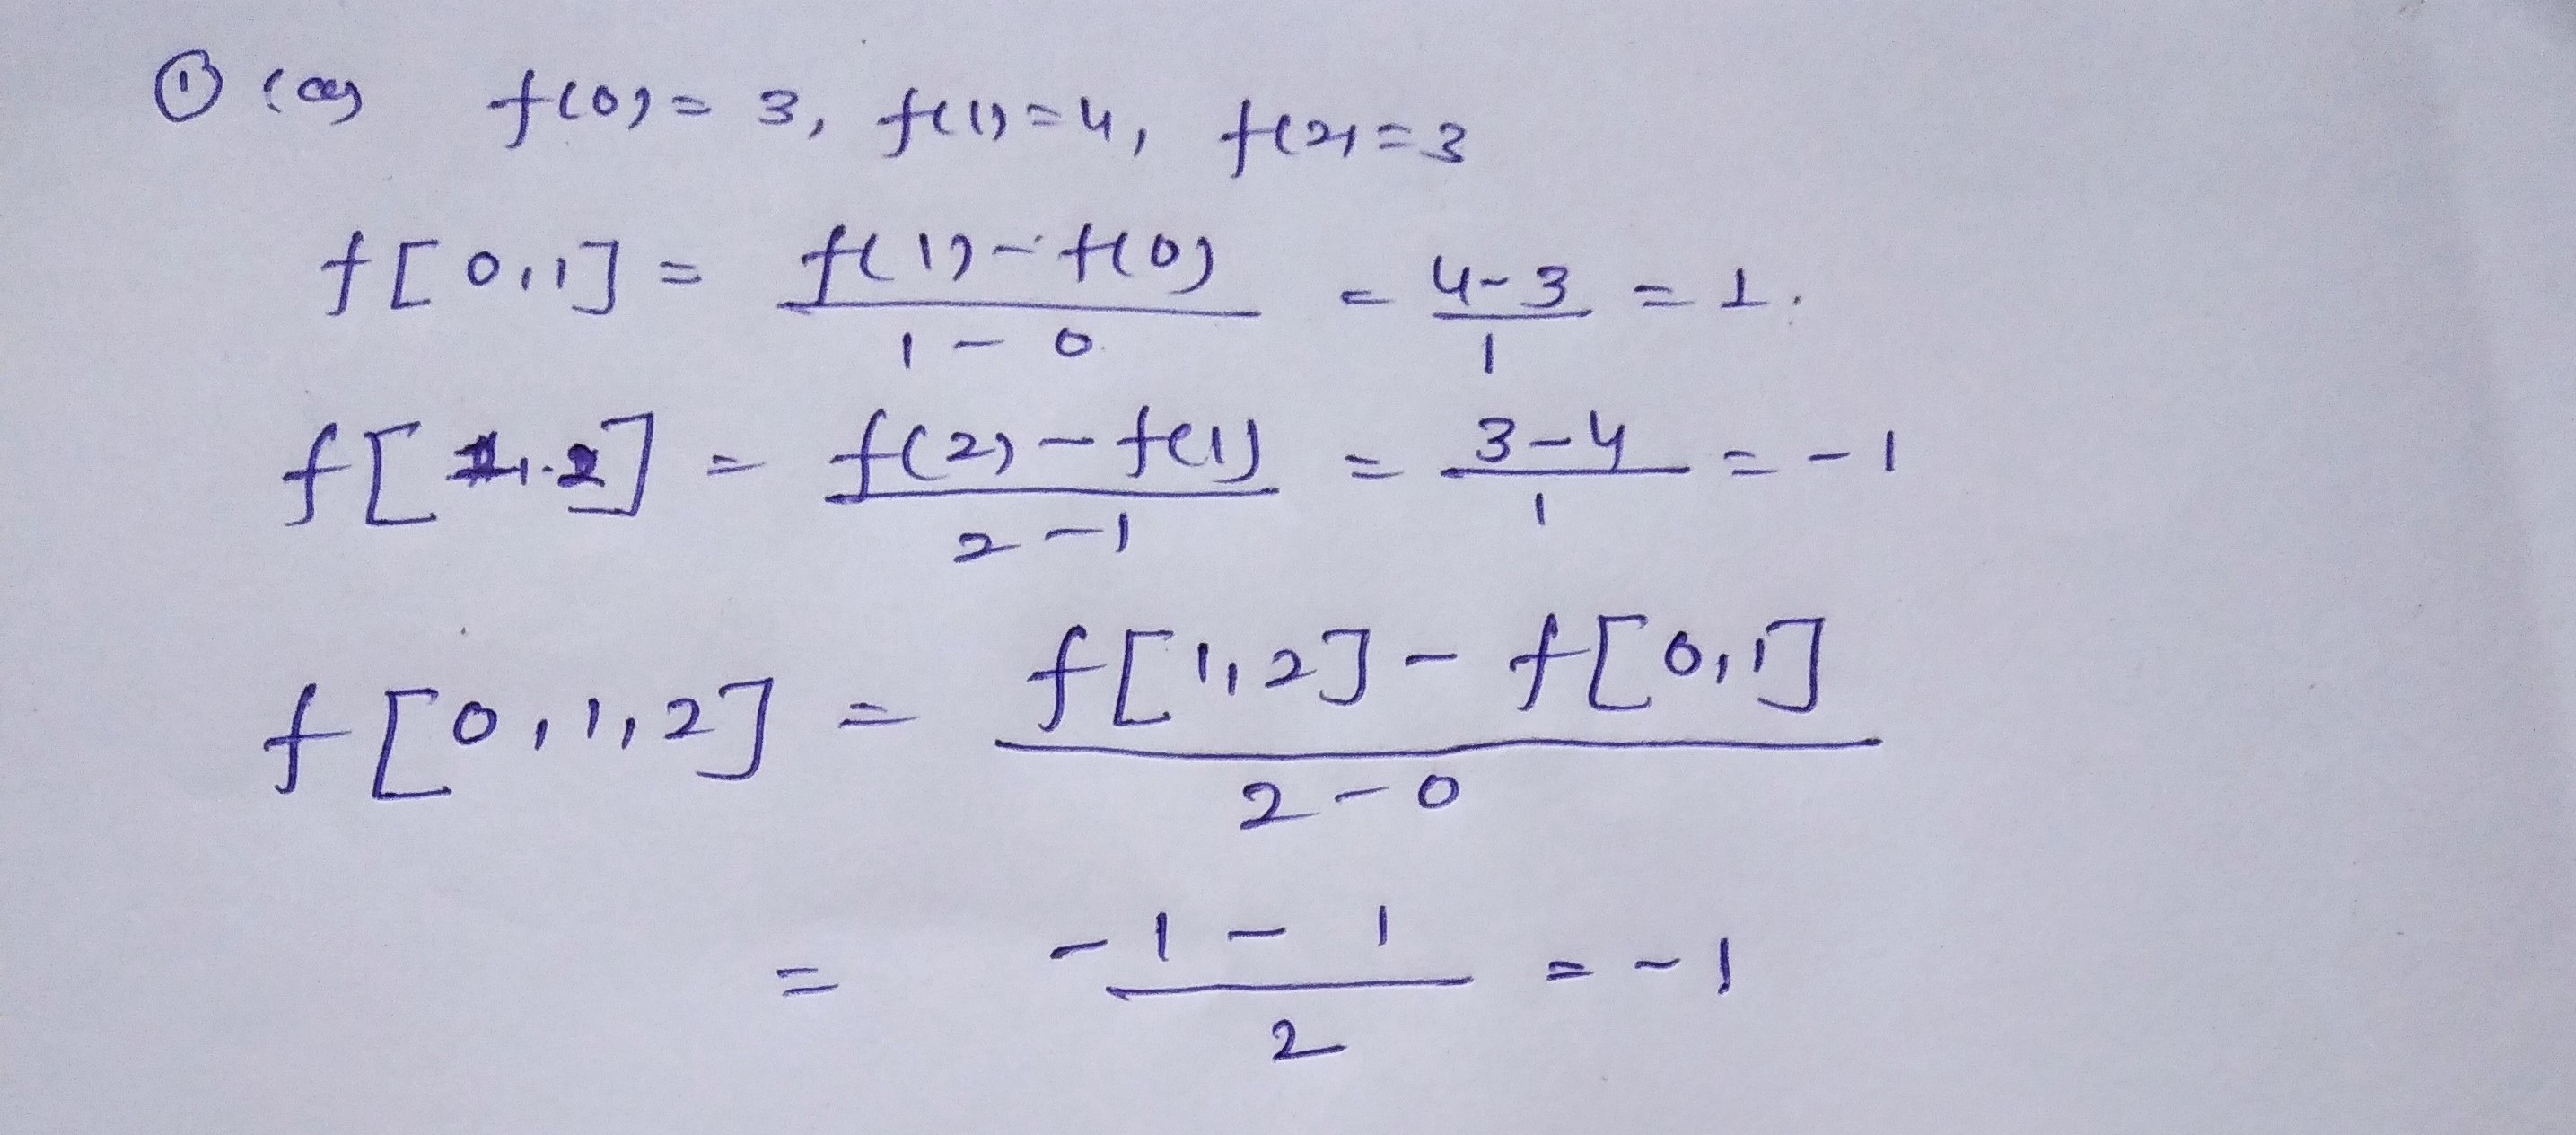 ① (a) f(0) = 3, f(1) = 4, f(2) = 3
f[0,1] = \frac{f(1) - f(0)}{1 - 0} = \frac{4-3}{1} = 1.
f[1,2] = \frac{f(2) - f(1)}{2 - 1} = \frac{3-4}{1} = -1
f[0,1,2] = \frac{f[1,2] - f[0,1]}{2 - 0}
= \frac{-1 - 1}{2} = -1